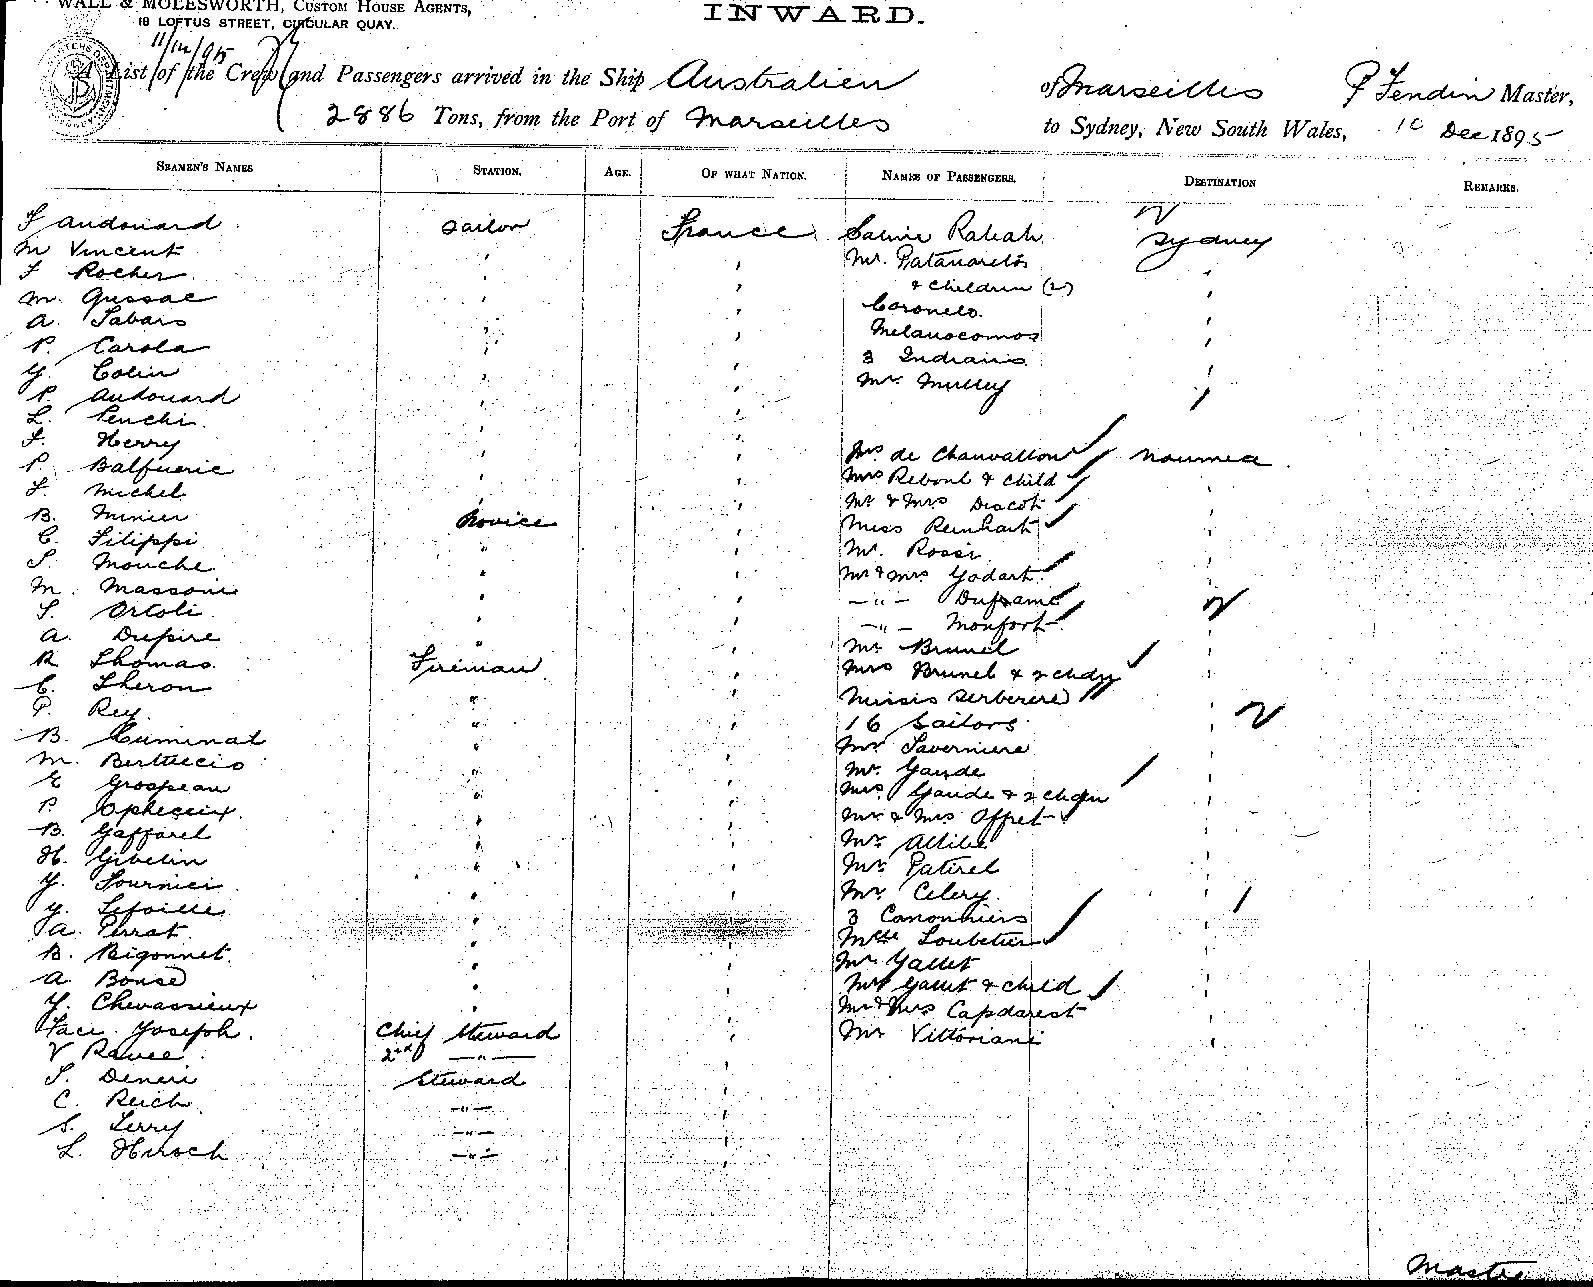 WALL & MOLESWORTH, CUSTOM HOUSE AGENTS,
18 LOFTUS STREET, CIRCULAR QUAY.
INWARD.
11/12/95
A List of the Crew and Passengers arrived in the Ship Australien of Marseilles P Fendin Master,
2886 Tons, from the Port of Marseilles to Sydney, New South Wales, 10 Dec 1895
SEAMEN'S NAMES STATION. AGE. OF WHAT NATION. NAMES OF PASSENGERS. DESTINATION REMARKS.
F Audouard Sailor France Salime Rabeah Sydney
M Vincent " " Mr.
F Rocher " " & Children (2) "
M. Gussac " " Coronelo.
A. Tabars " " Melanocomos "
P. Carola " " 3 Indians "
Y. Colin " " Mr. Mulley "
P. Audouard " "
L. Penchi " "
F. Herry " " Mrs de Chauvallon Noumea
P. Balfuerie " " Mrs Reboul & Child "
F. Michel " " Mr & Mrs Discot "
B. Minier Novice " Miss Reinhart "
C. Filippi " " Mr. Rossi "
S. Mouche " " Mr & Mrs Godart "
M. Massoni " " —"— "
S. Ortoli " " —"— Monfort "
A. Dupire " " Mr Brunel "
R Thomas Fireman " Mrs Brunel & 2 chdn "
C. Theron " " "
P. Rey " " 16 Sailors "
B. Cuminal " " Mr Taverniere "
M. Bertuccio " " Mr. Gaude "
E Grospeau " " Mrs Gaude & 2 chdn "
P. " " Mr & Mrs Offret "
B. Gaffarel " " Mr Allibe "
H. Gibelin " " Mr Patirel "
Y. Fournier " " Mr Celery "
Y. " " 3 Canonniers "
A. Perrat " " Mlle Loubetier "
B. Bigonnet " " Mr Gallet "
A. " " Mrs Gallet & Child "
Y. Chevassieux " " Mr & Mrs Capdarest "
Joseph. Chief Steward " Mr Vittoriani "
V Ravee 2nd —"— "
S. Deneri Steward "
C. Reich —"— "
S. Terry —"— "
L. Hirsch —"— "
Master